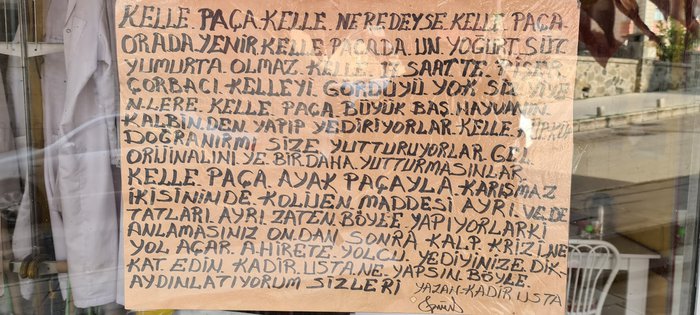 KELLE. PAÇA. KELLE. NEREDEYSE. KELLE. PAÇA.
ORADA. YENİR. KELLE. PAÇADA. UN. YOĞURT. SÜT
YUMURTA. OLMAZ. KELLE. 12. SAATTE. PİŞER.
ÇORBACI. KELLEYİ. GÖRDÜYÜ. YOK. SİZ. YİYE
NLERE. KELLE. PAÇA. BÜYÜK. BAŞ. HAYVANIN.
KALBİNDEN. YAPIP. YEDİRİYORLAR. KELLE,
DOĞRANIRMI SİZE. YUTTURUYORLAR. GEL.
ORİJİNALINI. YE. BİRDAHA. YUTTURMASINLAR.
KELLE. PAÇA. AYAK. PAÇAYLA. KARIŞMAZ
İKİSİNİNDE. KOLİJEN. MADDESİ. AYRI. VE. DE
TATLARI. AYRI. ZATEN. BÖYLE. YAPIYORLARKİ
ANLAMASINIZ. ONDAN. SONRA. KALP. KRİZİNE
YOL. AÇAR. AHİRETE. YOLCU. YEDİYİNİZE. DİK-
KAT. EDİN. KADİR. USTA. NE. YAPSIN. BÖYLE.
AYDINLATIYORUM SİZLERİ YAZAN-KADİR USTA